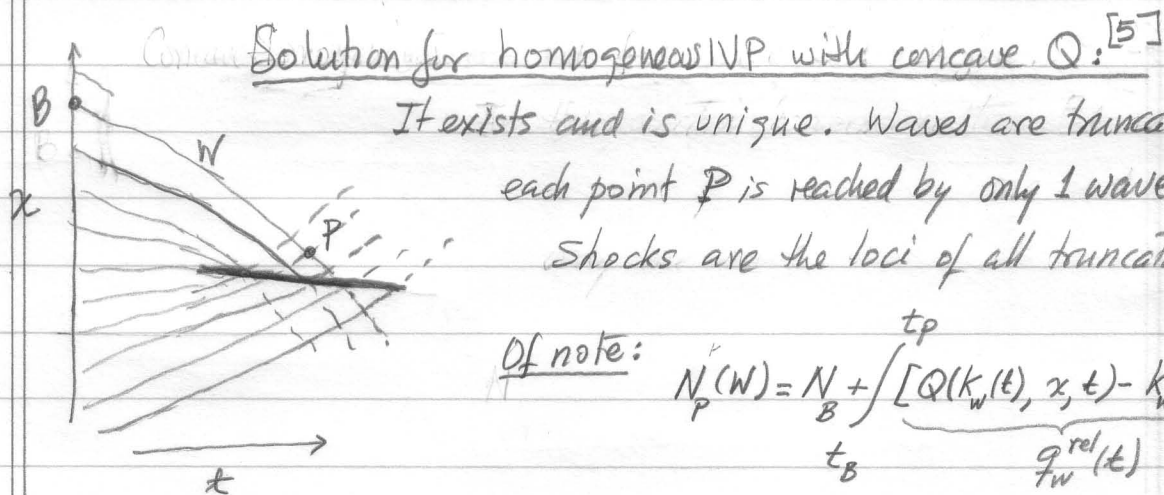 Solution for homogeneous IVP with concave Q: [5]
B
It exists and is unique. Waves are trunca
W
each point P is reached by only 1 wave
x
P
Shocks are the loci of all truncat
Of note: N_P(W) = N_B + ∫_{t_B}^{t_P} [Q(k_w(t), x, t) - k_w
q_w^{rel}(t)
t